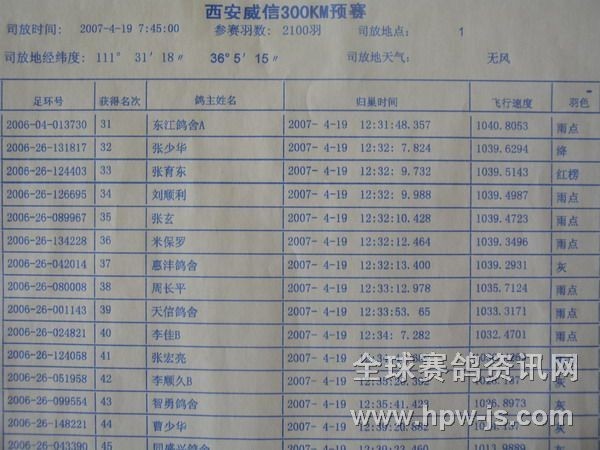 西安威信300KM预赛
司放时间: 2007-4-19 7:45:00 参赛羽数: 2100羽 司放地点: 1
司放地经纬度: 111° 31′ 18″ 36° 5′ 15″ 司放地天气: 无风
足环号 获得名次 鸽主姓名 归巢时间 飞行速度 羽色
2006-04-013730 31 东江鸽舍A 2007- 4-19 12:31:48.357 1040.8053 雨点
2006-26-131817 32 张少华 2007- 4-19 12:32: 7.824 1039.6294 绛
2006-26-124403 33 张育东 2007- 4-19 12:32: 9.732 1039.5143 红楞
2006-26-126695 34 刘顺利 2007- 4-19 12:32: 9.988 1039.4987 雨点
2006-26-089967 35 张玄 2007- 4-19 12:32:10.428 1039.4723 雨点
2006-26-134228 36 米保罗 2007- 4-19 12:32:12.464 1039.3496 雨点
2006-26-042014 37 惠沣鸽舍 2007- 4-19 12:32:13.400 1039.2931 灰
2006-26-080008 38 周长平 2007- 4-19 12:33:12.978 1035.7124 雨点
2006-26-001143 39 天信鸽舍 2007- 4-19 12:33:53. 65 1033.3171 雨点
2006-26-024821 40 李佳B 2007- 4-19 12:34: 7.282 1032.4701 雨点
2006-26-124058 41 张宏亮 2007- 4-19
2006-26-051958 42 李顺久B 2007- 4-19 灰
2006-26-099554 43 智勇鸽舍 2007- 4-19 12:35:41.423 灰
2006-26-148221 44 曹少华 2007- 4-19
2006-26-043390 45 同盛兴鸽舍 2007- 4-19 1013.9889
全球赛鸽资讯网
www.hpw-js.com